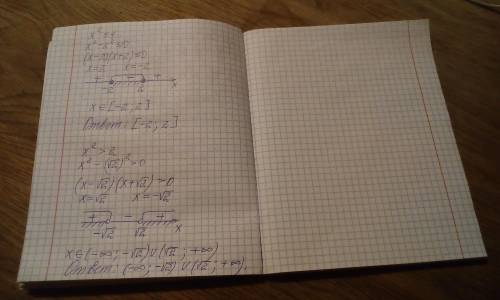 x² ≤ 4
x² - x² ≤ 0
(x-2)(x+2) ≤ 0
x=2 x=-2
+ - +
-2 2 x
x ∈ [-2; 2]
Ответ: [-2; 2]
x² > 2
x² - (√2)² > 0
(x-√2)(x+√2) > 0
x=√2 x=-√2
+ - +
-√2 √2 x
x ∈ (-∞; -√2) ∪ (√2; +∞)
Ответ: (-∞; -√2) ∪ (√2; +∞).